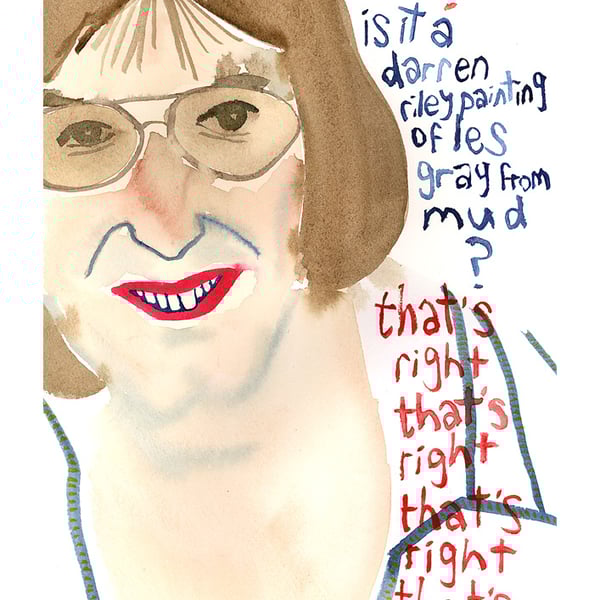 is it a
darren
riley painting
of les
gray from
mud
?
that's
right
that's
right
that's
right
that's